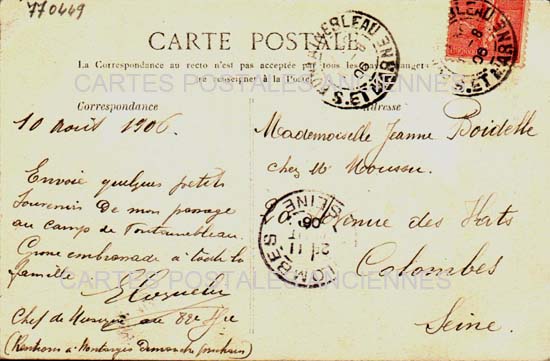 770449
CARTE POSTALE
La Correspondance au recto n'est pas acceptée par tous les pays étrangers
(Se renseigner à la Poste)
CARTES POSTALES ANCIENNES
Correspondance
Adresse
10 Août 1906.
Envoie quelques petits
Souvenirs De mon passage
au camp de Fontainebleau
toute la
famille
Chef de Musique au 82e
(Rentrons à Montargis Dimanche prochain)
Mademoiselle Jeanne Boidelle
chez Mr
Avenue des
Colombes
Seine.
FONTAINEBLEAU
S. ET MARNE
COLOMBES
SEINE
CARTES POSTALES ANCIENNES